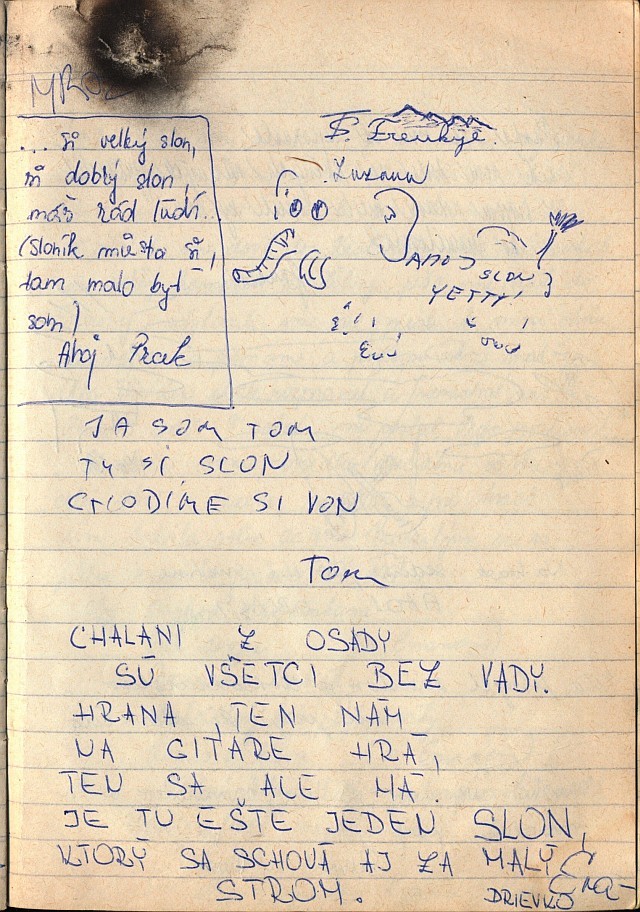 MROZ
... Si velký slon,
si dobrý slon,
máš rád ľudí...
(sloník
tam malo byť
som)
Ahoj
Zuzana
AHOJ
SLON
YETTY!
JA SOM TOM
TY SI SLON
CHODÍME SI VON
Tom
CHALANI Z OSADY
SÚ VŠETCI BEZ VADY.
HRANA, TEN NÁM
NA GITARE HRÁ,
TEN SA ALE MÁ.
JE TU EŠTE JEDEN SLON,
KTORÝ SA SCHOVÁ AJ ZA MALÝ
STROM.
DRIEVKO